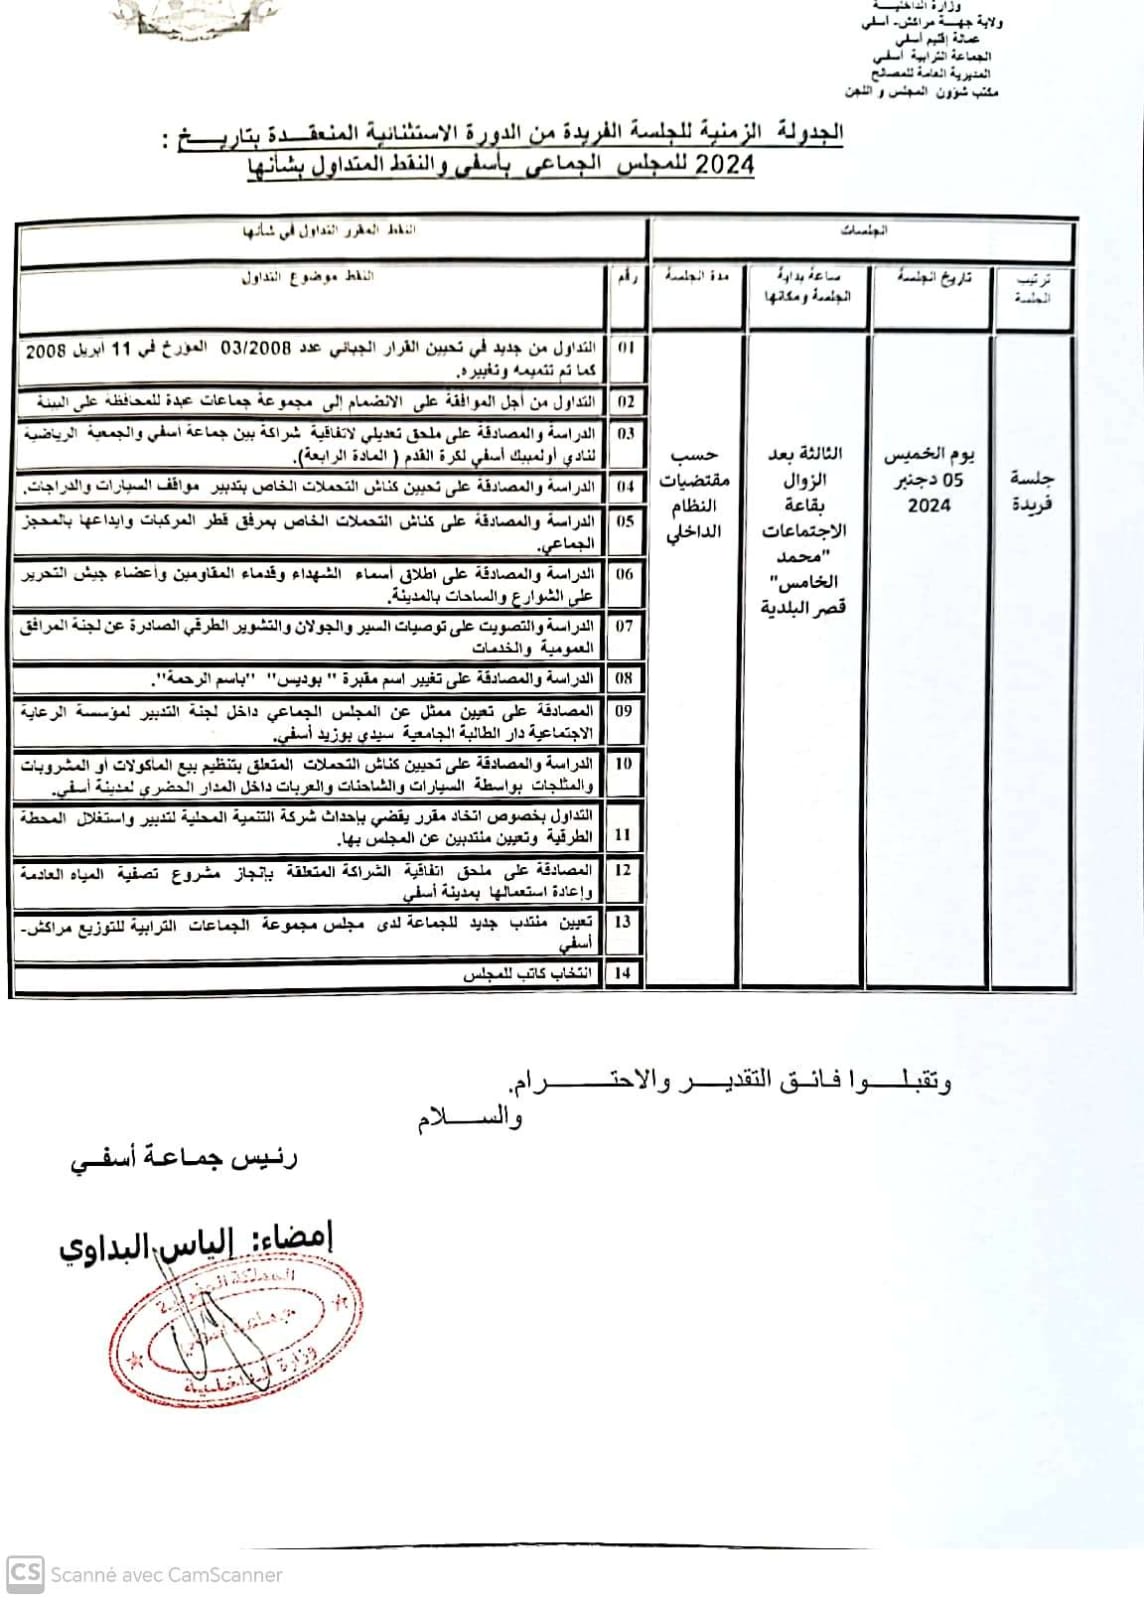 وزارة الداخليـــة
ولاية جهـة مراكش- أسفي
عمالة إقليم أسفي
الجماعة الترابية أسفي
المديرية العامة للمصالح
مكتب شؤون المجلس و اللجن
الجدولة الزمنية للجلسة الفريدة من الدورة الاستثنائية المنعقدة بتاريـــخ :
2024 للمجلس الجماعي بأسفي والنقط المتداول بشأنها
الجلسات
النقط المقرر التداول في شأنها
ترتيب
الجلسة
تاريخ الجلسة
ساعة بداية
الجلسة ومكانها
مدة الجلسة
رقم
النقط موضوع التداول
جلسة
فريدة
يوم الخميس
05 دجنبر
2024
الثالثة بعد
الزوال
بقاعة
الاجتماعات
"محمد
الخامس"
قصر البلدية
حسب
مقتضيات
النظام
الداخلي
01 التداول من جديد في تحيين القرار الجبائي عدد 03/2008 المؤرخ في 11 أبريل 2008
كما تم تتميمه وتغييره.
02 التداول من أجل الموافقة على الانضمام إلى مجموعة جماعات عبدة للمحافظة على البيئة
03 الدراسة والمصادقة على ملحق تعديلي لاتفاقية شراكة بين جماعة أسفي والجمعية الرياضية
لنادي أولمبيك أسفي لكرة القدم ( المادة الرابعة).
04 الدراسة والمصادقة على تحيين كناش التحملات الخاص بتدبير مواقف السيارات والدراجات.
05 الدراسة والمصادقة على كناش التحملات الخاص بمرفق قطر المركبات وإيداعها بالمحجز
الجماعي.
06 الدراسة والمصادقة على اطلاق أسماء الشهداء وقدماء المقاومين وأعضاء جيش التحرير
على الشوارع والساحات بالمدينة.
07 الدراسة والتصويت على توصيات السير والجولان والتشوير الطرقي الصادرة عن لجنة المرافق
العمومية والخدمات
08 الدراسة والمصادقة على تغيير اسم مقبرة " بوديس" "باسم الرحمة".
09 المصادقة على تعيين ممثل عن المجلس الجماعي داخل لجنة التدبير لمؤسسة الرعاية
الاجتماعية دار الطالبة الجامعية سيدي بوزيد أسفي.
10 الدراسة والمصادقة على تحيين كناش التحملات المتعلق بتنظيم بيع المأكولات أو المشروبات
والمثلجات بواسطة السيارات والشاحنات والعربات داخل المدار الحضري لمدينة أسفي.
11 التداول بخصوص اتخاد مقرر يقضي بإحداث شركة التنمية المحلية لتدبير واستغلال المحطة
الطرقية وتعيين منتدبين عن المجلس بها.
12 المصادقة على ملحق اتفاقية الشراكة المتعلقة بإنجاز مشروع تصفية المياه العادمة
وإعادة استعمالها بمدينة أسفي
13 تعيين منتدب جديد للجماعة لدى مجلس مجموعة الجماعات الترابية للتوزيع مراكش-
أسفي
14 انتخاب كاتب للمجلس
وتقبلـــوا فائـق التقديـــر والاحتـــرام.
والســـلام
رئـيس جمـاعـة أسفــي
إمضاء: إلياس البداوي
المملكة المغربية
جماعة أسفي
وزارة الداخلية
CS Scanné avec CamScanner